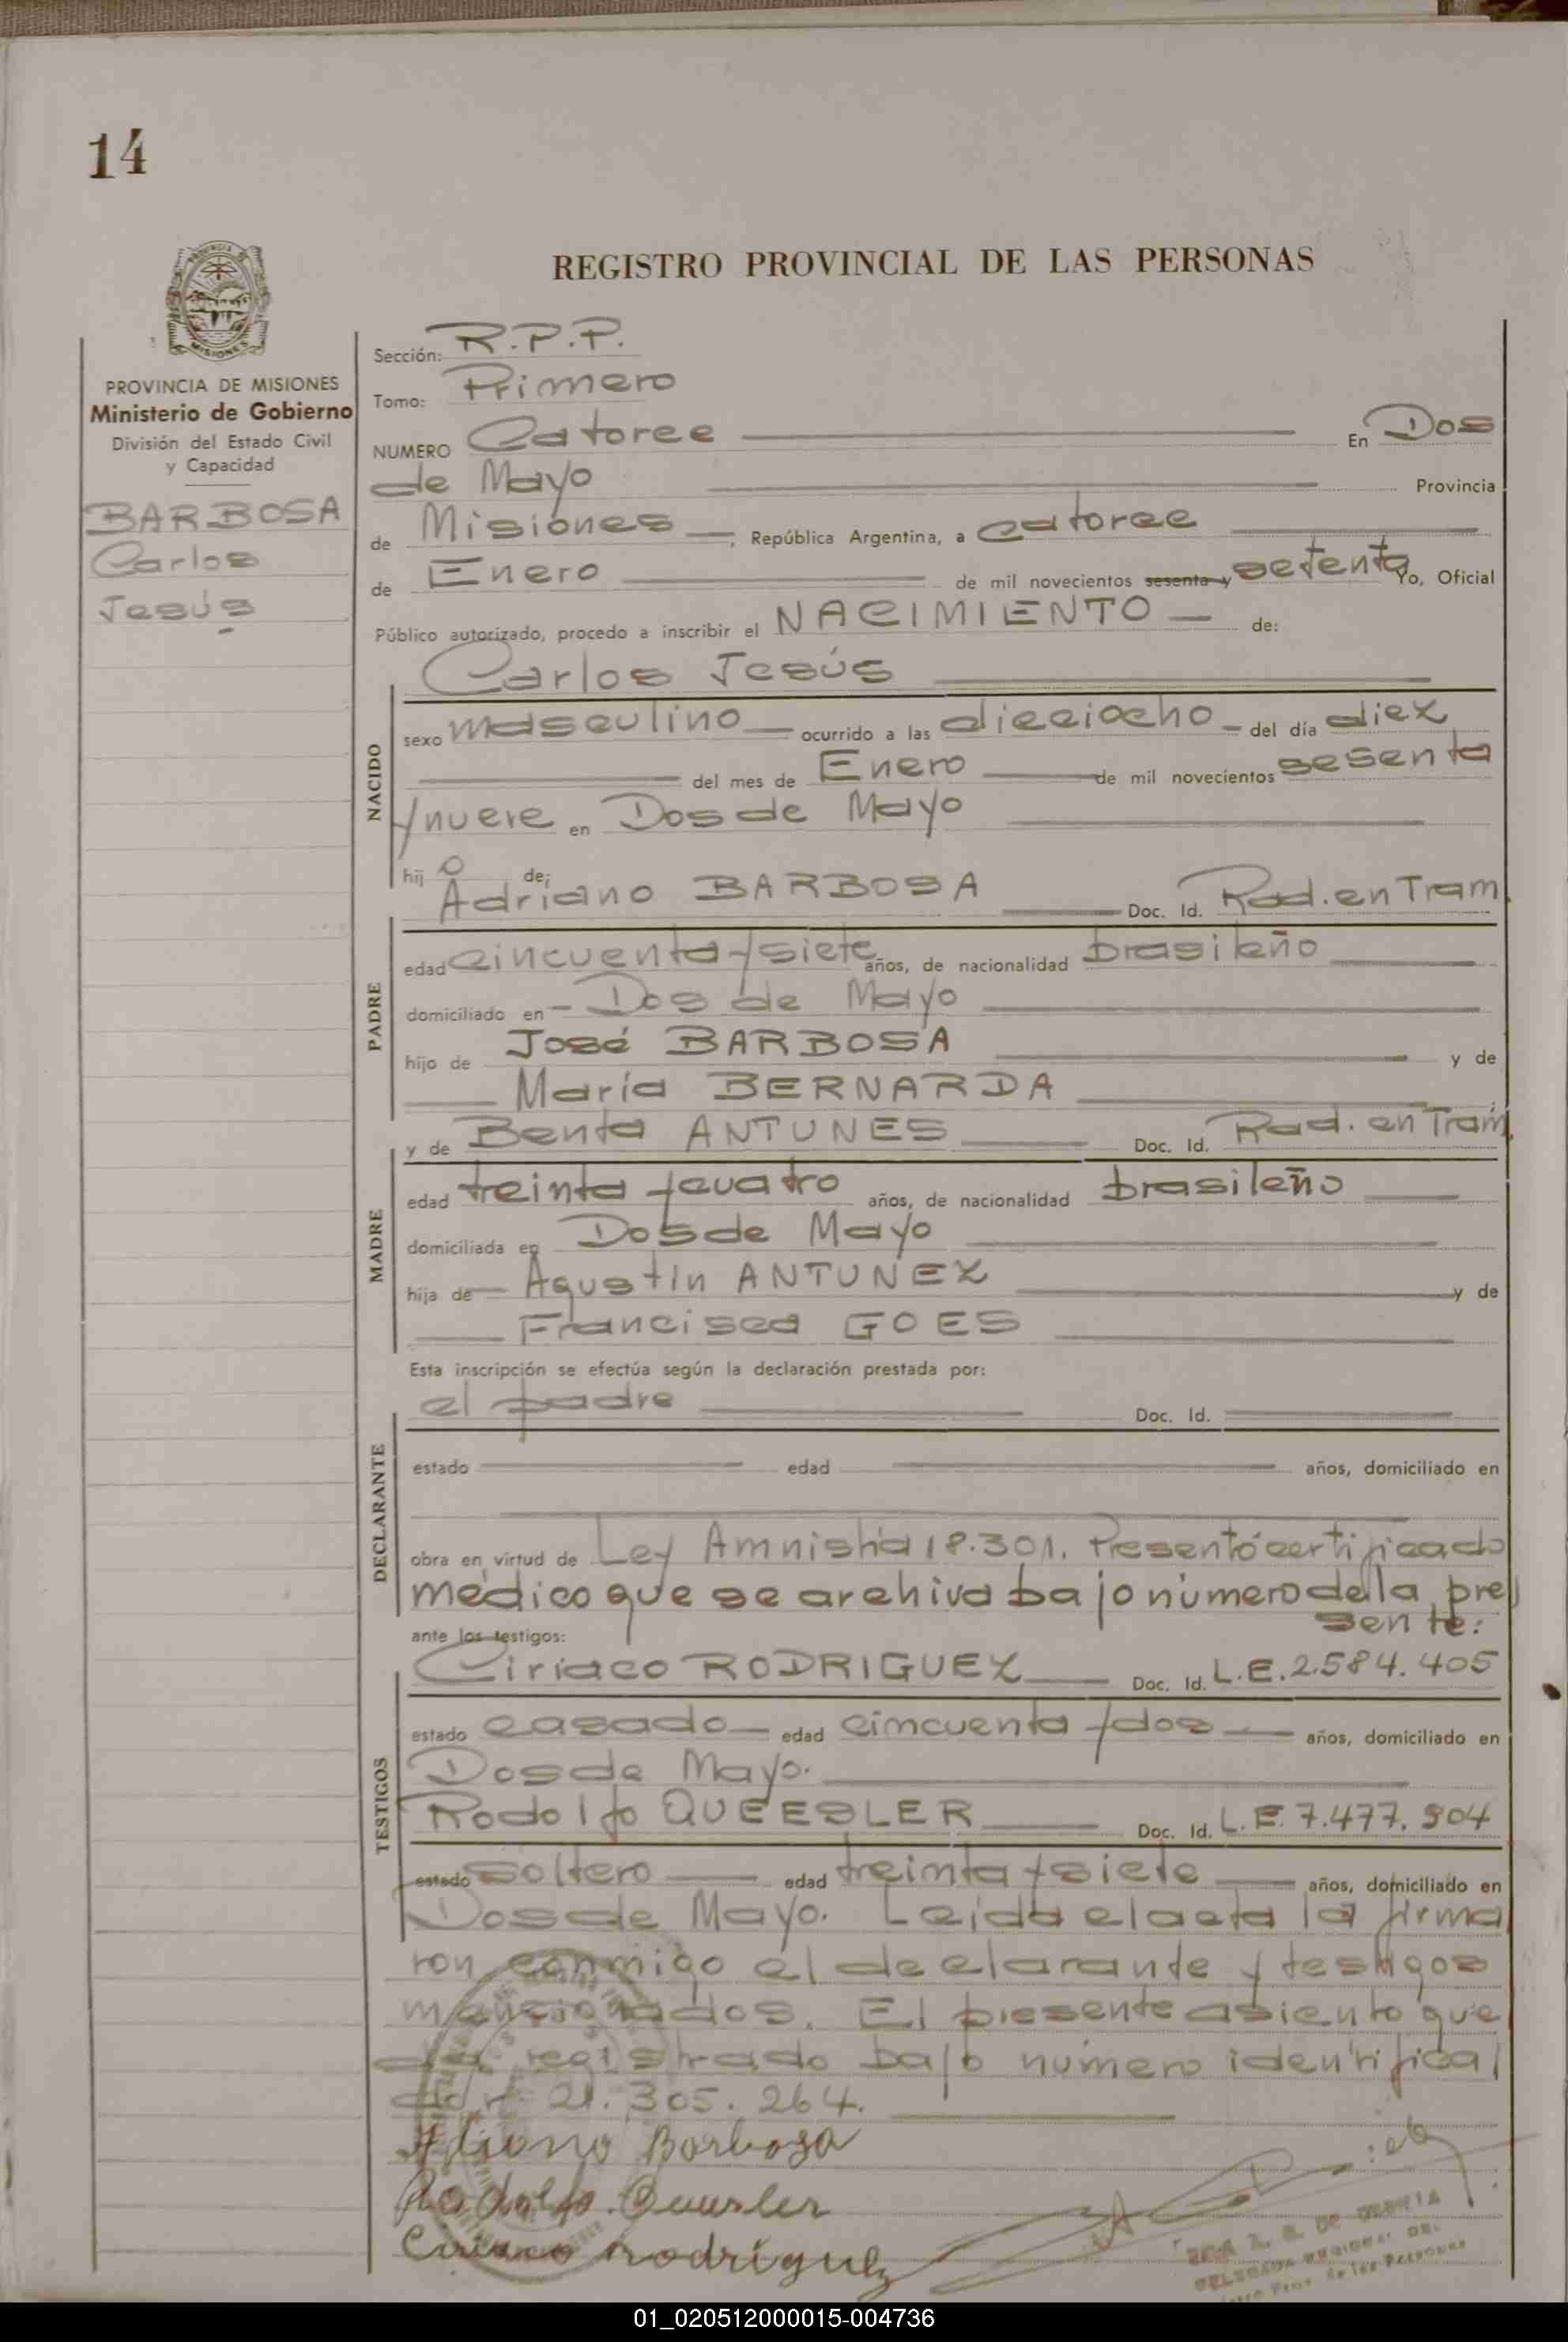 14
REGISTRO PROVINCIAL DE LAS PERSONAS
PROVINCIA DE MISIONES
Ministerio de Gobierno
División del Estado Civil
y Capacidad
BARBOSA
Carlos
Jesús
Sección: R.P.P.
Tomo: Primero
NUMERO Catorce En Dos
de Mayo Provincia
de Misiones, República Argentina, a catorce
de Enero de mil novecientos sesenta y setenta Yo, Oficial
Público autorizado, procedo a inscribir el NACIMIENTO de:
Carlos Jesús
NACIDO
sexo masculino ocurrido a las dieciocho del día diez
del mes de Enero de mil novecientos sesenta
y nueve en Dos de Mayo
hij o de;
Adriano BARBOSA Doc. Id. Rad. en Tram
PADRE
edad cincuenta y siete años, de nacionalidad brasileño
domiciliado en Dos de Mayo
hijo de José BARBOSA y de
María BERNARDA
y de Benta ANTUNES Doc. Id. Rad. en Tram.
MADRE
edad treinta y cuatro años, de nacionalidad brasileño
domiciliada en Dos de Mayo
hija de Agustín ANTUNEZ y de
Francisca GOES
Esta inscripción se efectúa según la declaración prestada por:
el padre Doc. Id.
DECLARANTE
estado edad años, domiciliado en
obra en virtud de Ley Amnistía 18.301. Presentó certificado
médico que se archiva bajo número de la pre
sente:
ante los testigos:
Ciriaco RODRIGUEZ Doc. Id. L.E. 2.584.405
TESTIGOS
estado casado edad cincuenta y dos años, domiciliado en
Dos de Mayo.
Rodolfo QUEESLER Doc. Id. L.E. 7.477.904
estado soltero edad treinta y siete años, domiciliado en
Dos de Mayo. Leida el acta la firma
ron conmigo el declarante y testigos
mencionados. El presente asiento que
da registrado bajo número identifica
dor 21.305.264.
Barbosa
Rodolfo Queesler
Ciriaco Rodríguez
01_020512000015-004736